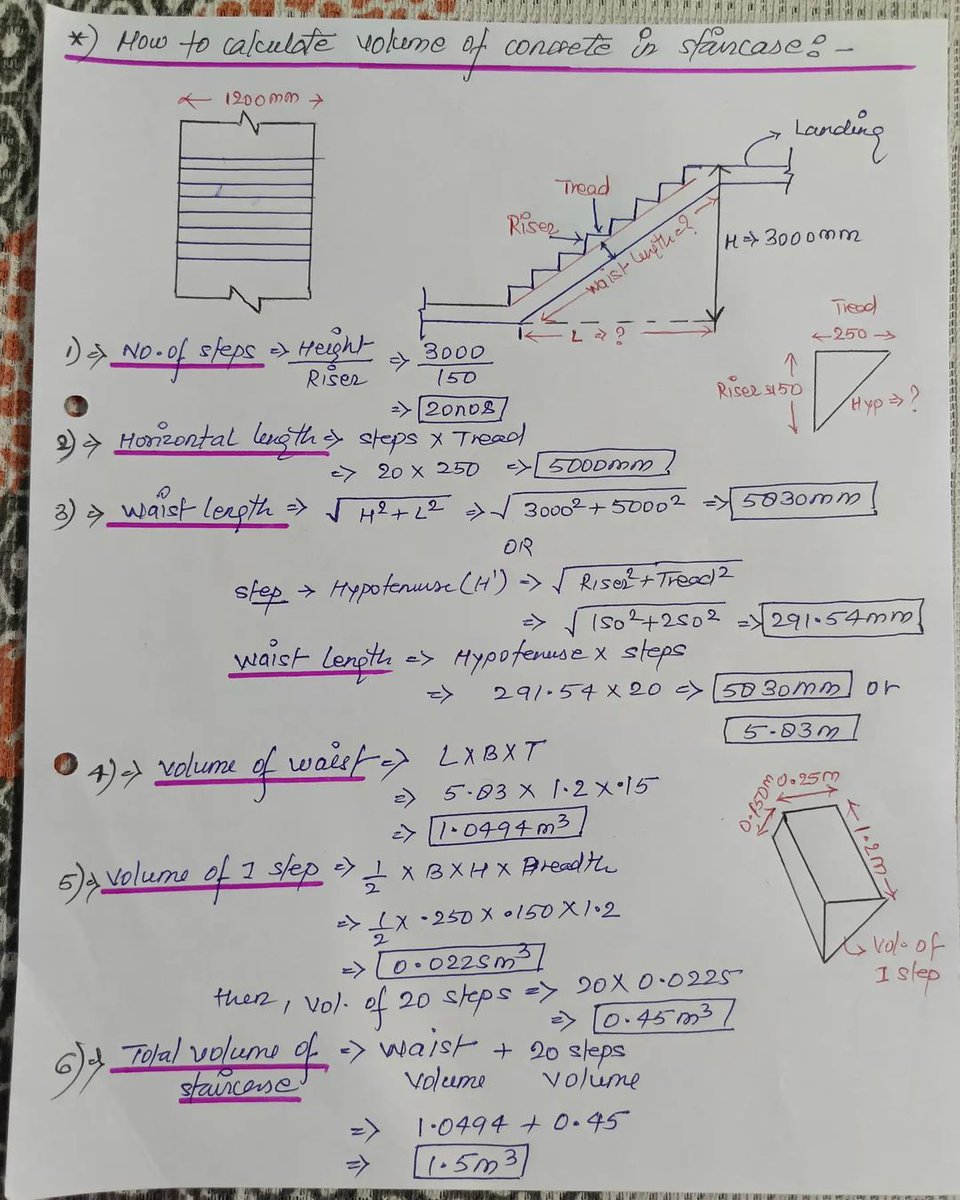 *) How to calculate volume of concrete in staircase:-
← 1200mm →
Landing
Tread
Riser
waist length=?
H⇒3000mm
L⇒?
Tread
←250→
Riser 150
Hyp⇒?
1)⇒ No. of steps ⇒ Height/Riser ⇒ 3000/150
⇒ 20nos
2)⇒ Horizontal length⇒ steps x Tread
⇒ 20 x 250 ⇒ 5000mm
3)⇒ waist length⇒ √H²+L² ⇒ √3000²+5000² ⇒ 5830mm
OR
step → Hypotenuse(H') ⇒ √Riser²+Tread²
⇒ √150²+250² ⇒ 291.54mm
waist length ⇒ Hypotenuse x steps
⇒ 291.54 x 20 ⇒ 5830mm or
5.83m
4)⇒ volume of waist⇒ LXBXT
⇒ 5.83 x 1.2 x .15
⇒ 1.0494m³
0.150m
0.25m
1.2m
Vol. of
1 step
5)⇒ volume of 1 step ⇒ 1/2 x B x H x Breadth
⇒ 1/2 x .250 x .150 x 1.2
⇒ 0.0225m³
then, vol. of 20 steps ⇒ 20 x 0.0225
⇒ 0.45m³
6)⇒ Total volume of ⇒ waist + 20 steps
staircase volume volume
⇒ 1.0494 + 0.45
⇒ 1.5m³